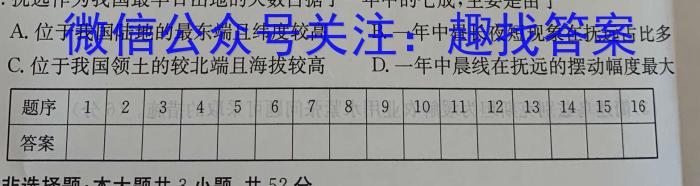 抚远作为我国最早日出地的天数占据了一年中的七成,主要是由于
A. 位于我国陆地的最东端且纬度较高 B. 一年中昼长夜短现象在抚远占比多
微信公众号关注:趣找答案
C. 位于我国领土的较北端且海拔较高 D. 一年中晨线在抚远的摆动幅度最大
题序 1 2 3 4 5 6 7 8 9 10 11 12 13 14 15 16
答案
非选择题:本大题共3小题,共52分